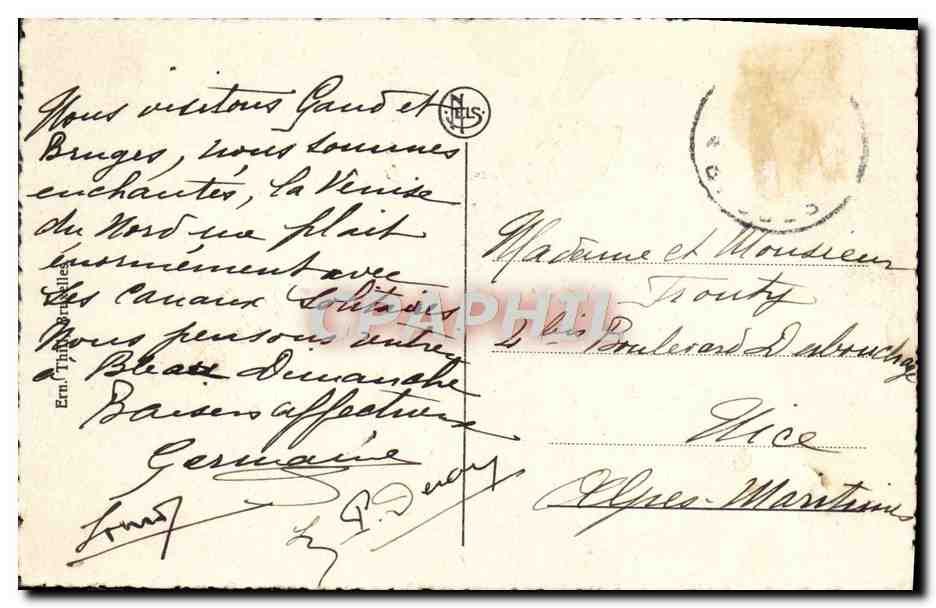 Nous visitons Gand et
Bruges, nous sommes
enchantés, la Venise
du Nord me plait
énormément avec
ses canaux solitaires
Nous pensons rentrer
à Dimanche
Baisers affection
Germaine
P. Deroy
Ern. Thill, Bruxelles
NELS
Madame et Monsieur
Trouty
2 bis Boulevard Dubouchage
Nice
Alpes-Maritimes
CPAPHIL